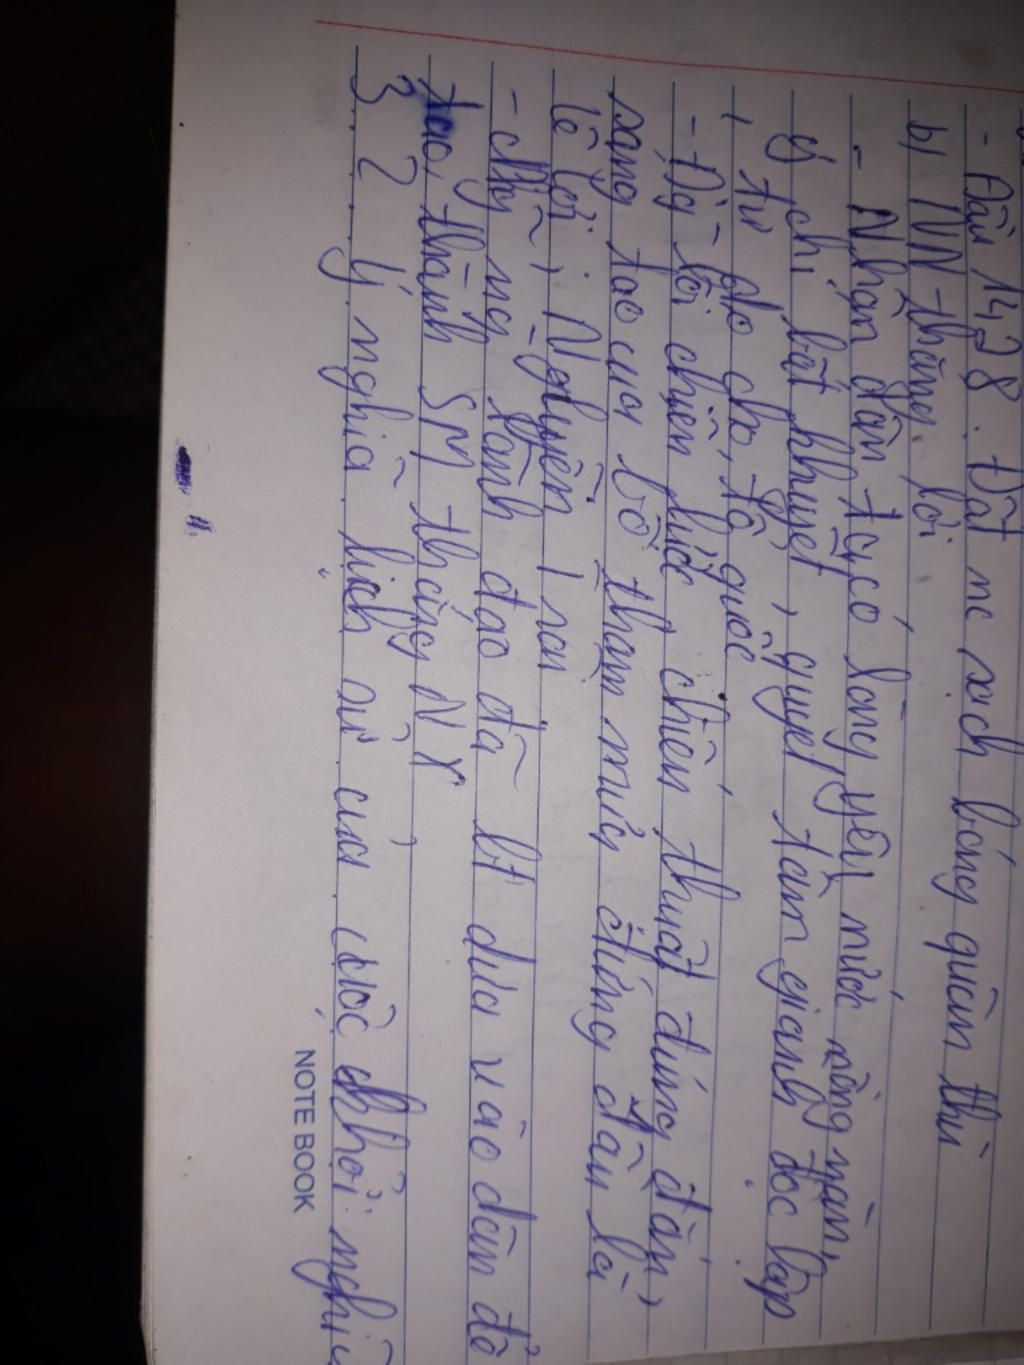 - Đầu 1428. Đất nc xạch bóng quân thù
b) NN thắng lợi
- Nhân dân ta có lòng yêu nước nồng nàn,
ý chí bất khuyết, quyết tâm giành độc lập
, tự do cho tổ quốc
- Đg lối chiến lược, chiến thuật đúng đắn,
sáng tạo của bộ tham mưu đứng đầu là
lê lợi, Nguyễn
- Những ng lãnh đạo đã bt dựa vào dân để
tạo thành SM thắng
3 2 ý nghĩa lịch sử của cuộc khởi nghĩa
NOTE BOOK